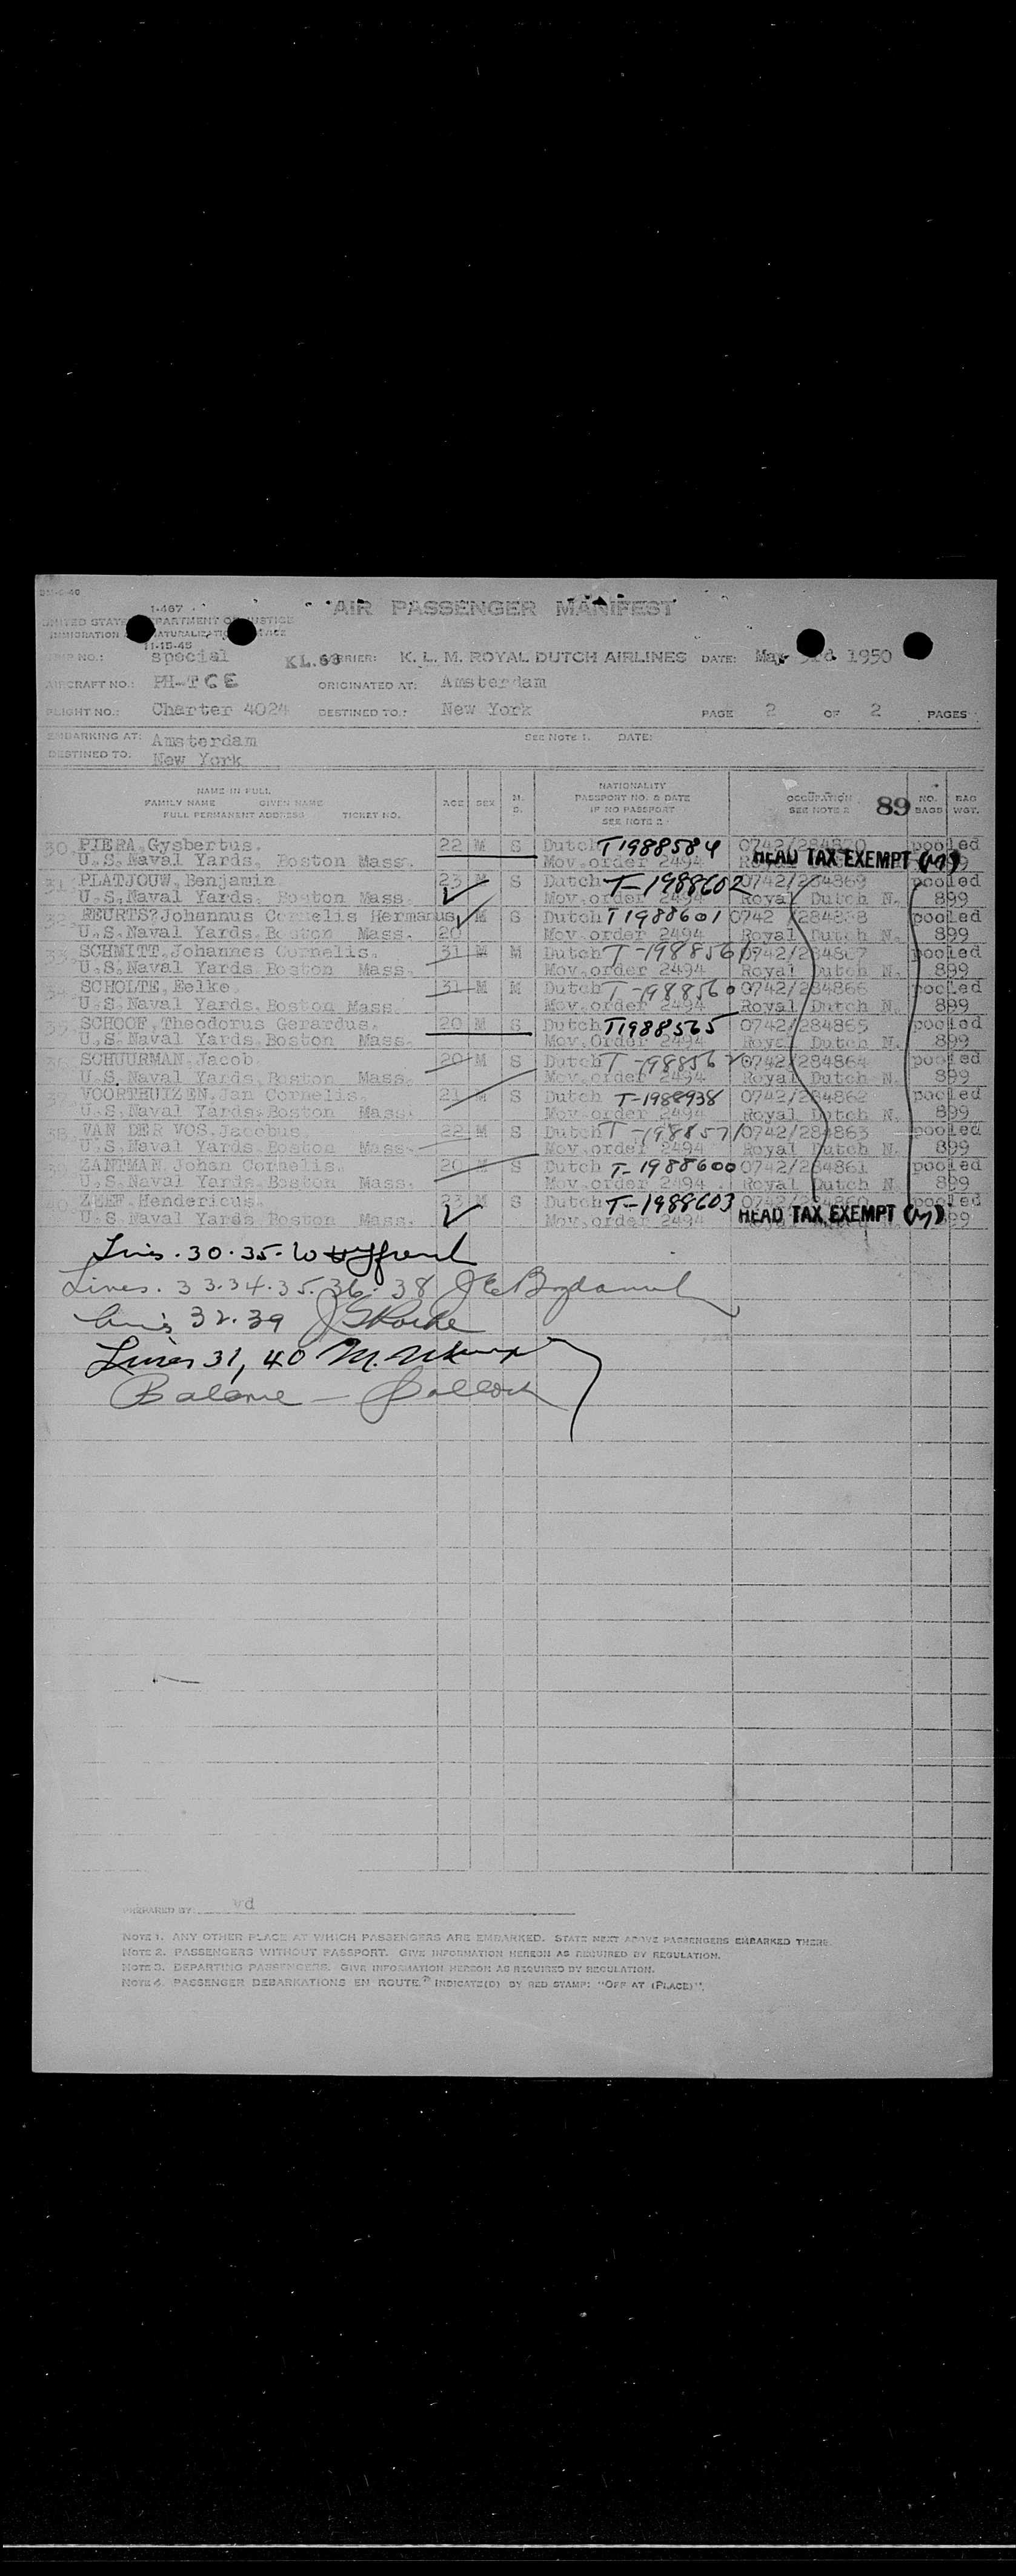 I-467
AIR PASSENGER MANIFEST
UNITED STATES DEPARTMENT OF JUSTICE
IMMIGRATION NATURALIZATION SERVICE
11-15-45
TRIP NO.: special KL.63 CARRIER: K. L. M. ROYAL DUTCH AIRLINES DATE: May 3rd. 1950
AIRCRAFT NO.: PH-TCE ORIGINATED AT: Amsterdam
FLIGHT NO.: Charter 4024 DESTINED TO.: New York PAGE 2 OF 2 PAGES
EMBARKING AT: Amsterdam SEE NOTE 1. DATE:
DESTINED TO. New York
NAME IN FULL
FAMILY NAME GIVEN NAME
FULL PERMANENT ADDRESS TICKET NO.
AGE SEX M. S.
NATIONALITY
PASSPORT NO. & DATE
IF NO PASSPORT
SEE NOTE 2
OCCUPATION
SEE NOTE 2
89
NO. BAGS
BAG WGT.
30 PIERA, Gysbertus. 22 M S Dutch T1988584 0742/284870 pooled
U.S. Naval Yards, Boston Mass. Mov.order 2494 HEAD TAX EXEMPT 899
31 PLATJOUW, Benjamin 23 M S Dutch T-1988602 0742/284869 pooled
U.S. Naval Yards. Boston Mass. Mov.order 2494 Royal Dutch N. 899
32 FEURTS? Johannus Cornelis Hermanus M S Dutch T1988601 0742 /284868 pooled
U.S. Naval Yards. Boston Mass. 20 Mov.order 2494 Royal Dutch N. 899
33 SCHMITT, Johannes Cornelis. 31 M M Dutch T-1988561 0742/284867 pooled
U.S. Naval Yards Boston Mass. Mov.order 2494 Royal Dutch N. 899
34 SCHOLTE, Eelke. 31 M M Dutch T-1988560 0742/284866 pooled
U.S. Naval Yards. Boston Mass. Mov.order 2494 Royal Dutch N. 899
35 SCHOOF, Theodorus Gerardus. 20 M S Dutch T1988565 0742/284865 pooled
U.S. Naval Yards. Boston Mass. Mov.Order 2494 Royal Dutch N. 899
36 SCHUURMAN, Jacob 20 M S Dutch 0742/284864 pooled
U.S. Naval Yards. Boston Mass. Mov.order 2494 Royal Dutch N. 899
VOORTHUIZEN, Jan Cornelis. 21 M S Dutch T-1988938 0742/284862 pooled
U.S. Naval Yards. Boston Mass. Mov order 2494 Royal Dutch N. 899
38 VAN DER VOS, Jacobus 22 M S Dutch T-1988571 0742/284863 pooled
U.S. Naval Yards Boston Mass. Mov.order 2494 Royal Dutch N. 899
39 ZANTMAN, Johan Cornelis. 20 M S Dutch T-1988600 0742/284861 pooled
U.S. Naval Yards. Boston Mass. Mov.order 2494 Royal Dutch N. 899
40 ZEEF, Hendericus. 23 M S Dutch T-1988603 0742/284860 pooled
U.S Naval Yards Boston Mass. Mov.order 2494 HEAD TAX EXEMPT 899
30.35.
Lines. 33.34.35.36.38
32.39
Lines 31, 40
Balance
PREPARED BY: vd
NOTE 1. ANY OTHER PLACE AT WHICH PASSENGERS ARE EMBARKED. STATE NEXT ABOVE PASSENGERS EMBARKED THERE.
NOTE 2. PASSENGERS WITHOUT PASSPORT. GIVE INFORMATION HEREON AS REQUIRED BY REGULATION.
NOTE 3. DEPARTING PASSENGERS. GIVE INFORMATION HEREON AS REQUIRED BY REGULATION.
NOTE 4. PASSENGER DEBARKATIONS EN ROUTE. INDICATE(D) BY RED STAMP: "OFF AT (PLACE)".